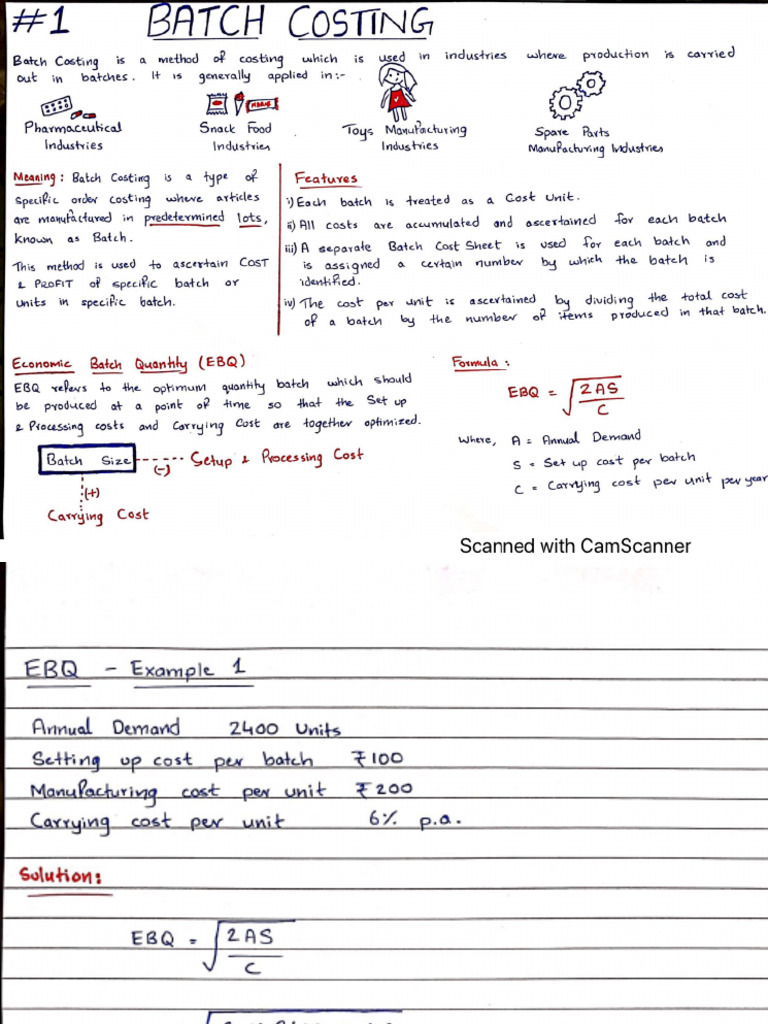 #1 BATCH COSTING
Batch Costing is a method of costing which is used in industries where production is carried
out in batches. It is generally applied in:-
Pharmaceutical
Industries
Snack Food
Industries
Toys Manufacturing
Industries
Spare Parts
Manufacturing Industries
Meaning: Batch Costing is a type of
specific order costing where articles
are manufactured in predetermined lots,
known as Batch.
This method is used to ascertain COST
& PROFIT of specific batch or
units in specific batch.
Features
i) Each batch is treated as a Cost Unit.
ii) All costs are accumulated and ascertained for each batch
iii) A separate Batch Cost Sheet is used for each batch and
is assigned a certain number by which the batch is
identified.
iv) The cost per unit is ascertained by dividing the total cost
of a batch by the number of items produced in that batch.
Economic Batch Quantity (EBQ)
EBQ refers to the optimum quantity batch which should
be produced at a point of time so that the Set up
& Processing costs and Carrying Cost are together optimized.
Batch Size (-) Setup & Processing Cost
(+)
Carrying Cost
Formula:
EBQ = √2AS/C
Where, A = Annual Demand
S = Set up cost per batch
C = Carrying cost per unit per year
Scanned with CamScanner
EBQ - Example 1
Annual Demand 2400 Units
Setting up cost per batch ₹100
Manufacturing cost per unit ₹200
Carrying cost per unit 6% p.a.
Solution:
EBQ = √2AS/C